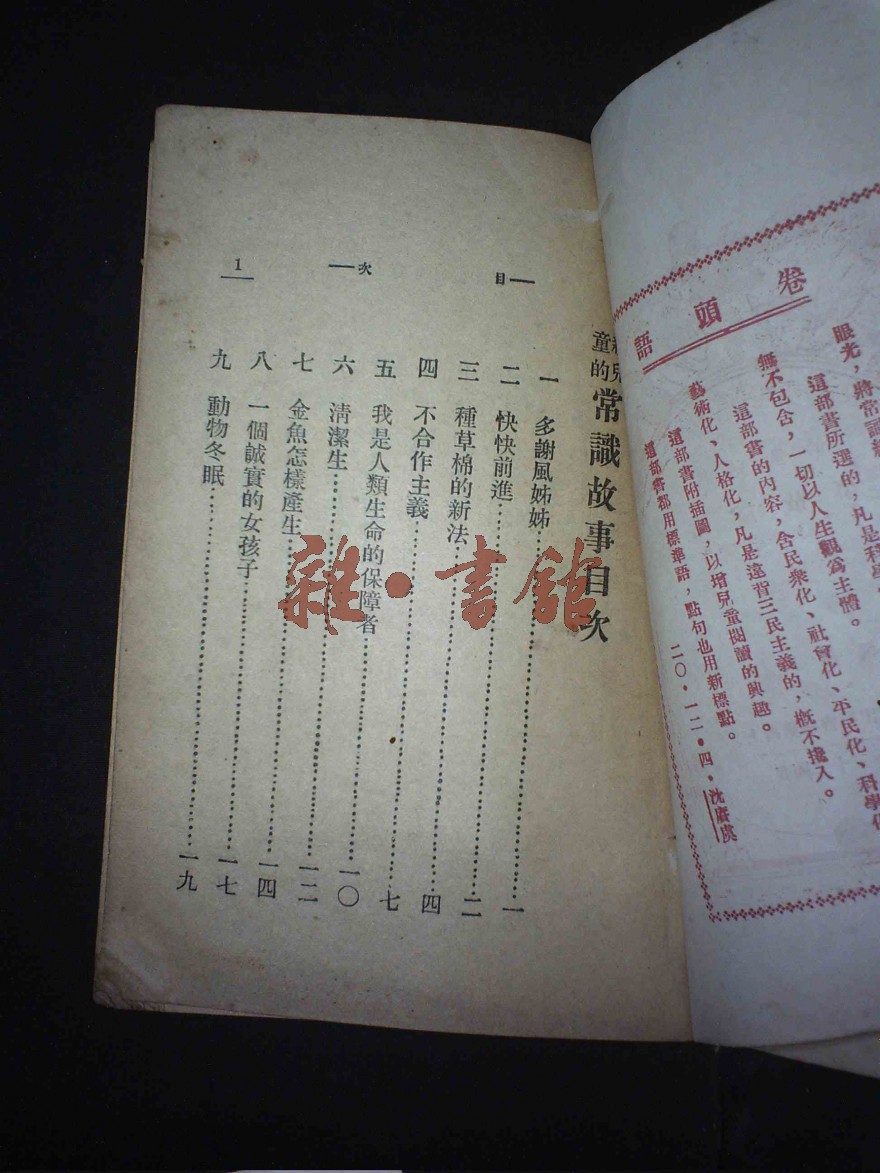 卷頭語
眼光，將常識
這部書所選的，凡是科學
無不包含，一切以人生觀爲主體。
這部書的內容，含民衆化、社會化、平民化、科學化
藝術化、人格化，凡是違背三民主義的，概不攙入。
這部書附插圖，以增兒童閱讀的興趣。
這部書都用標準語，點句也用新標點。
二〇・一二・四・沈
新兒童的常識故事目次
目次
一 多謝風姊姊…………一
二 快快前進…………二
三 種草棉的新法…………四
四 不合作主義…………七
五 我是人類生命的保障者…………一〇
六 清潔生…………一二
七 金魚怎樣產生…………一四
八 一個誠實的女孩子…………一七
九 動物冬眠…………一九
1
雜・書館